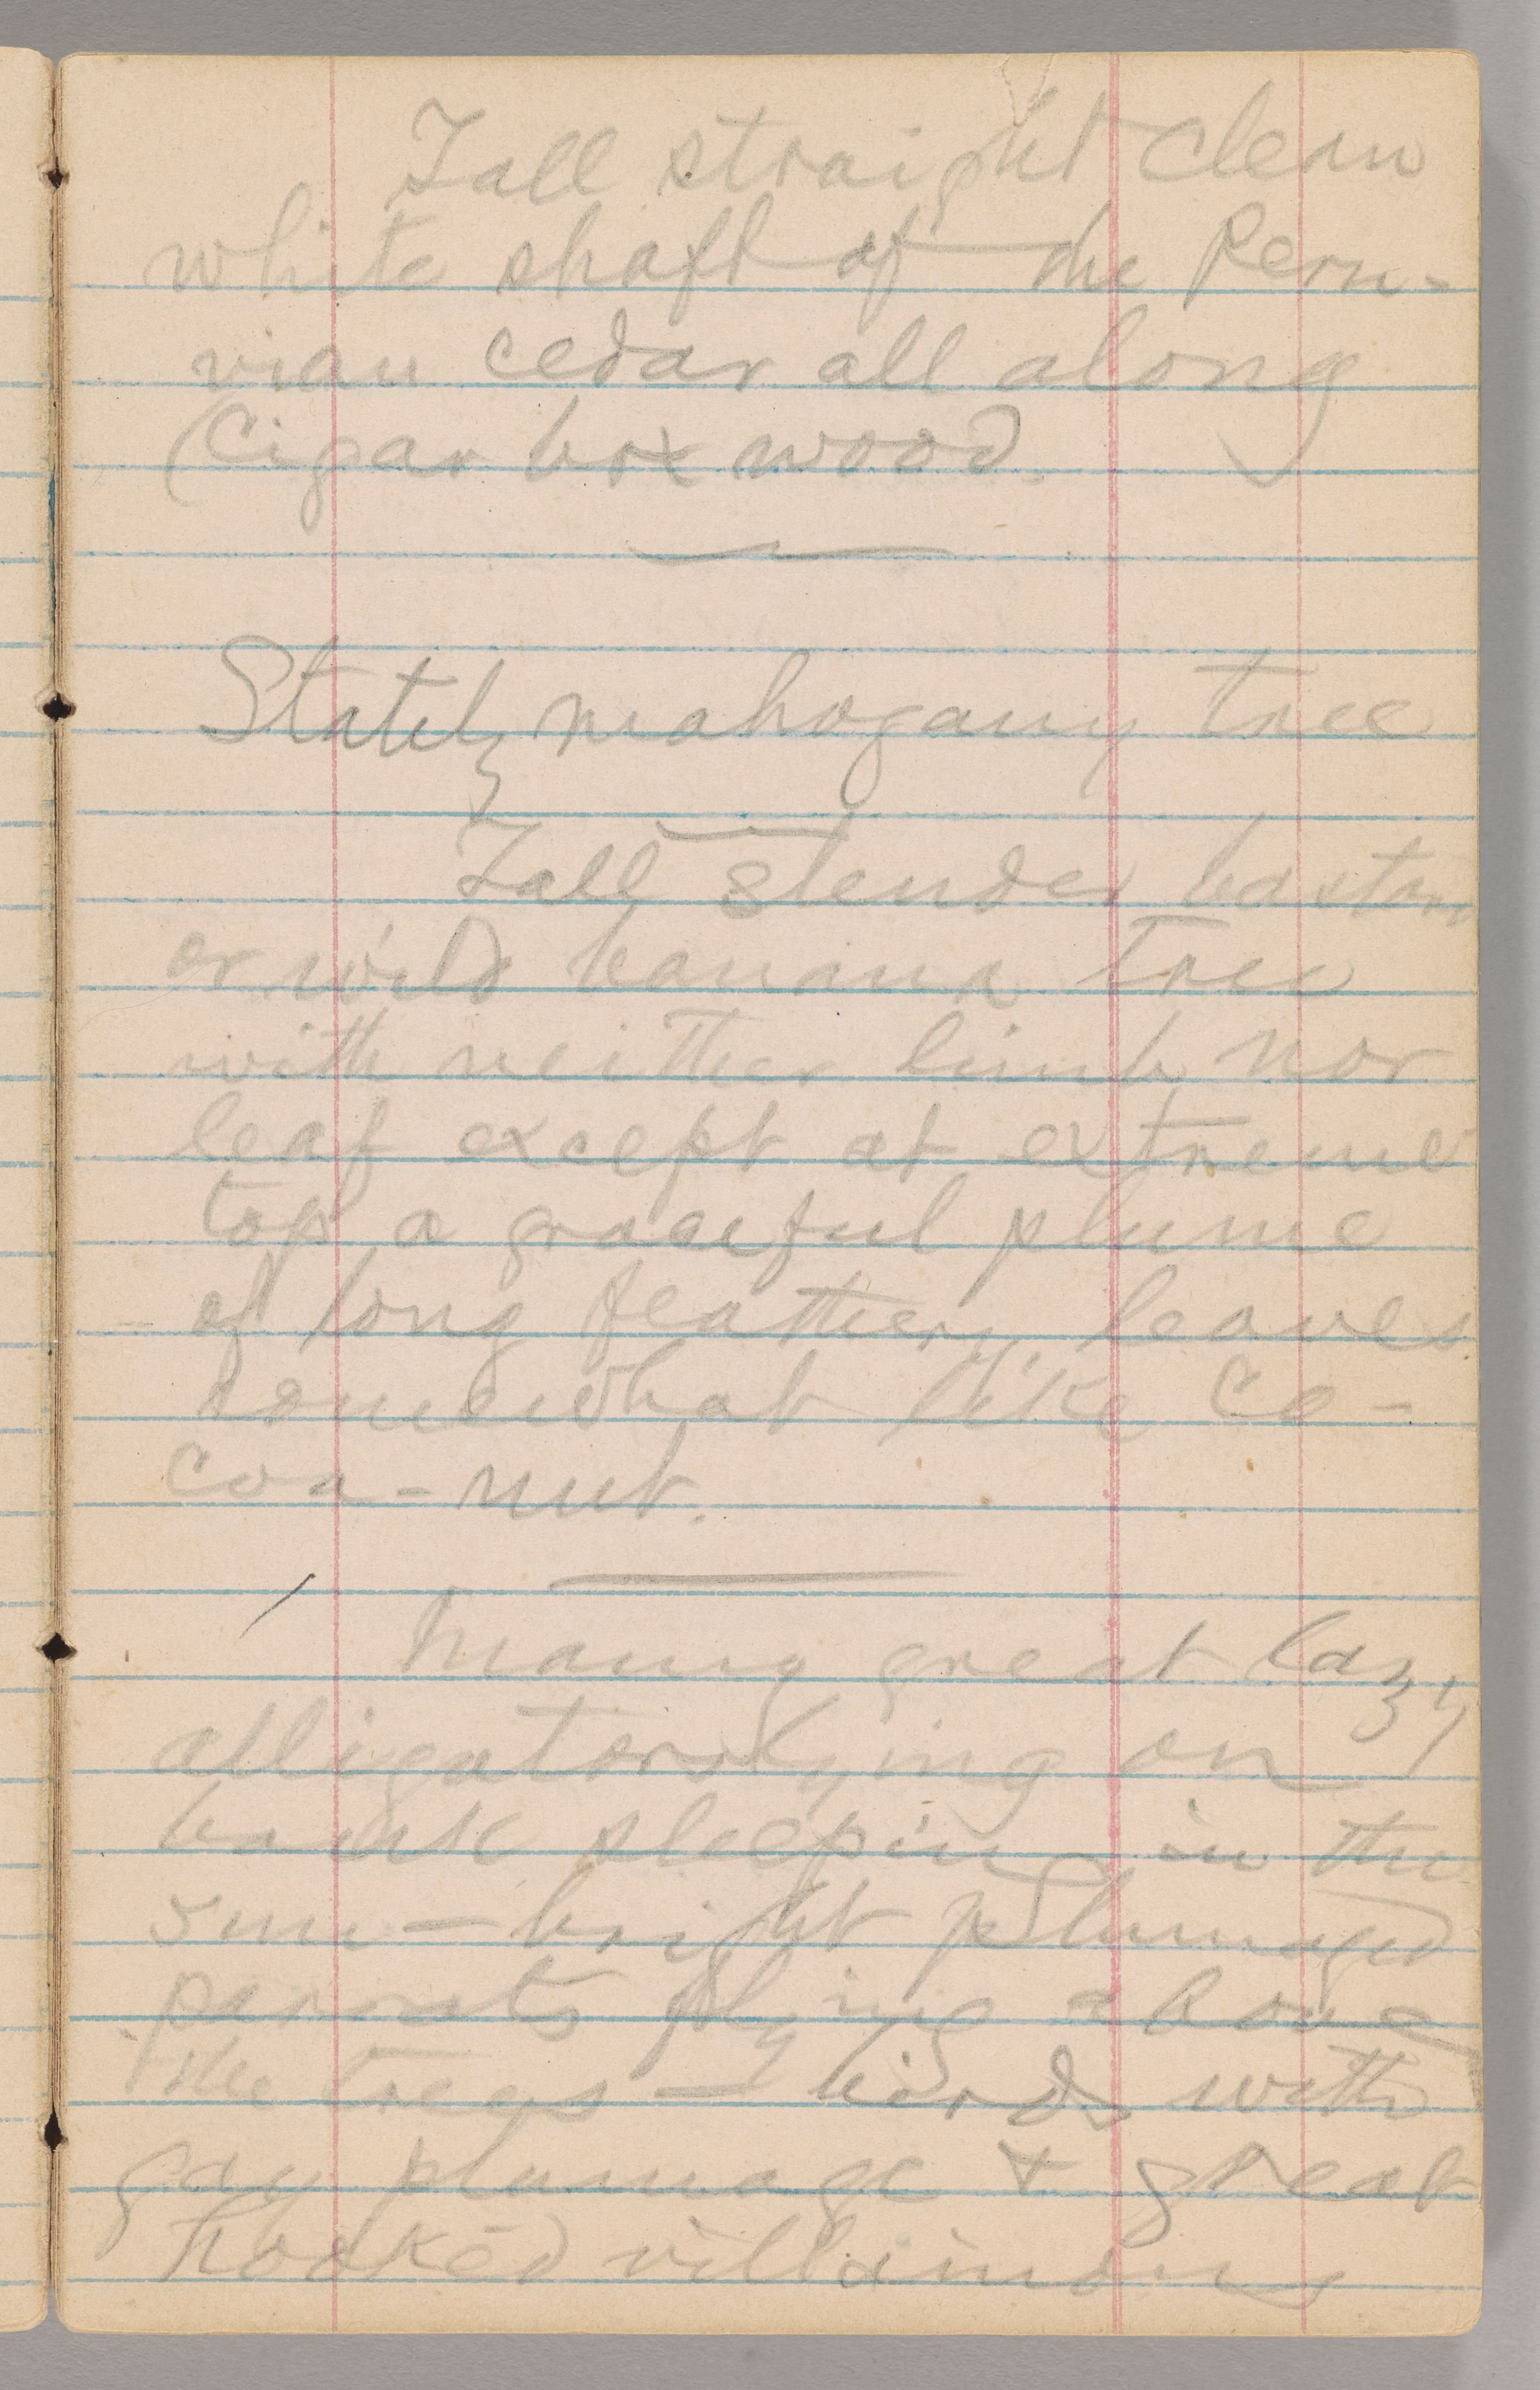 Tall straight clean
white shaft of the Peru-
vian cedar all along
(Cigar box wood.
Stately mahogany tree
Tall slender bastard
or wild banana tree
with neither limb nor
leaf except at extreme
top a graceful plume
of long feathery leaves
somewhat like co-
coa-nut.
Many great lazy
alligators lying on
bank sleeping in the
sun — bright plumaged
parrots flying above
the trees — birds with
gay plumage & great
hooked villainous